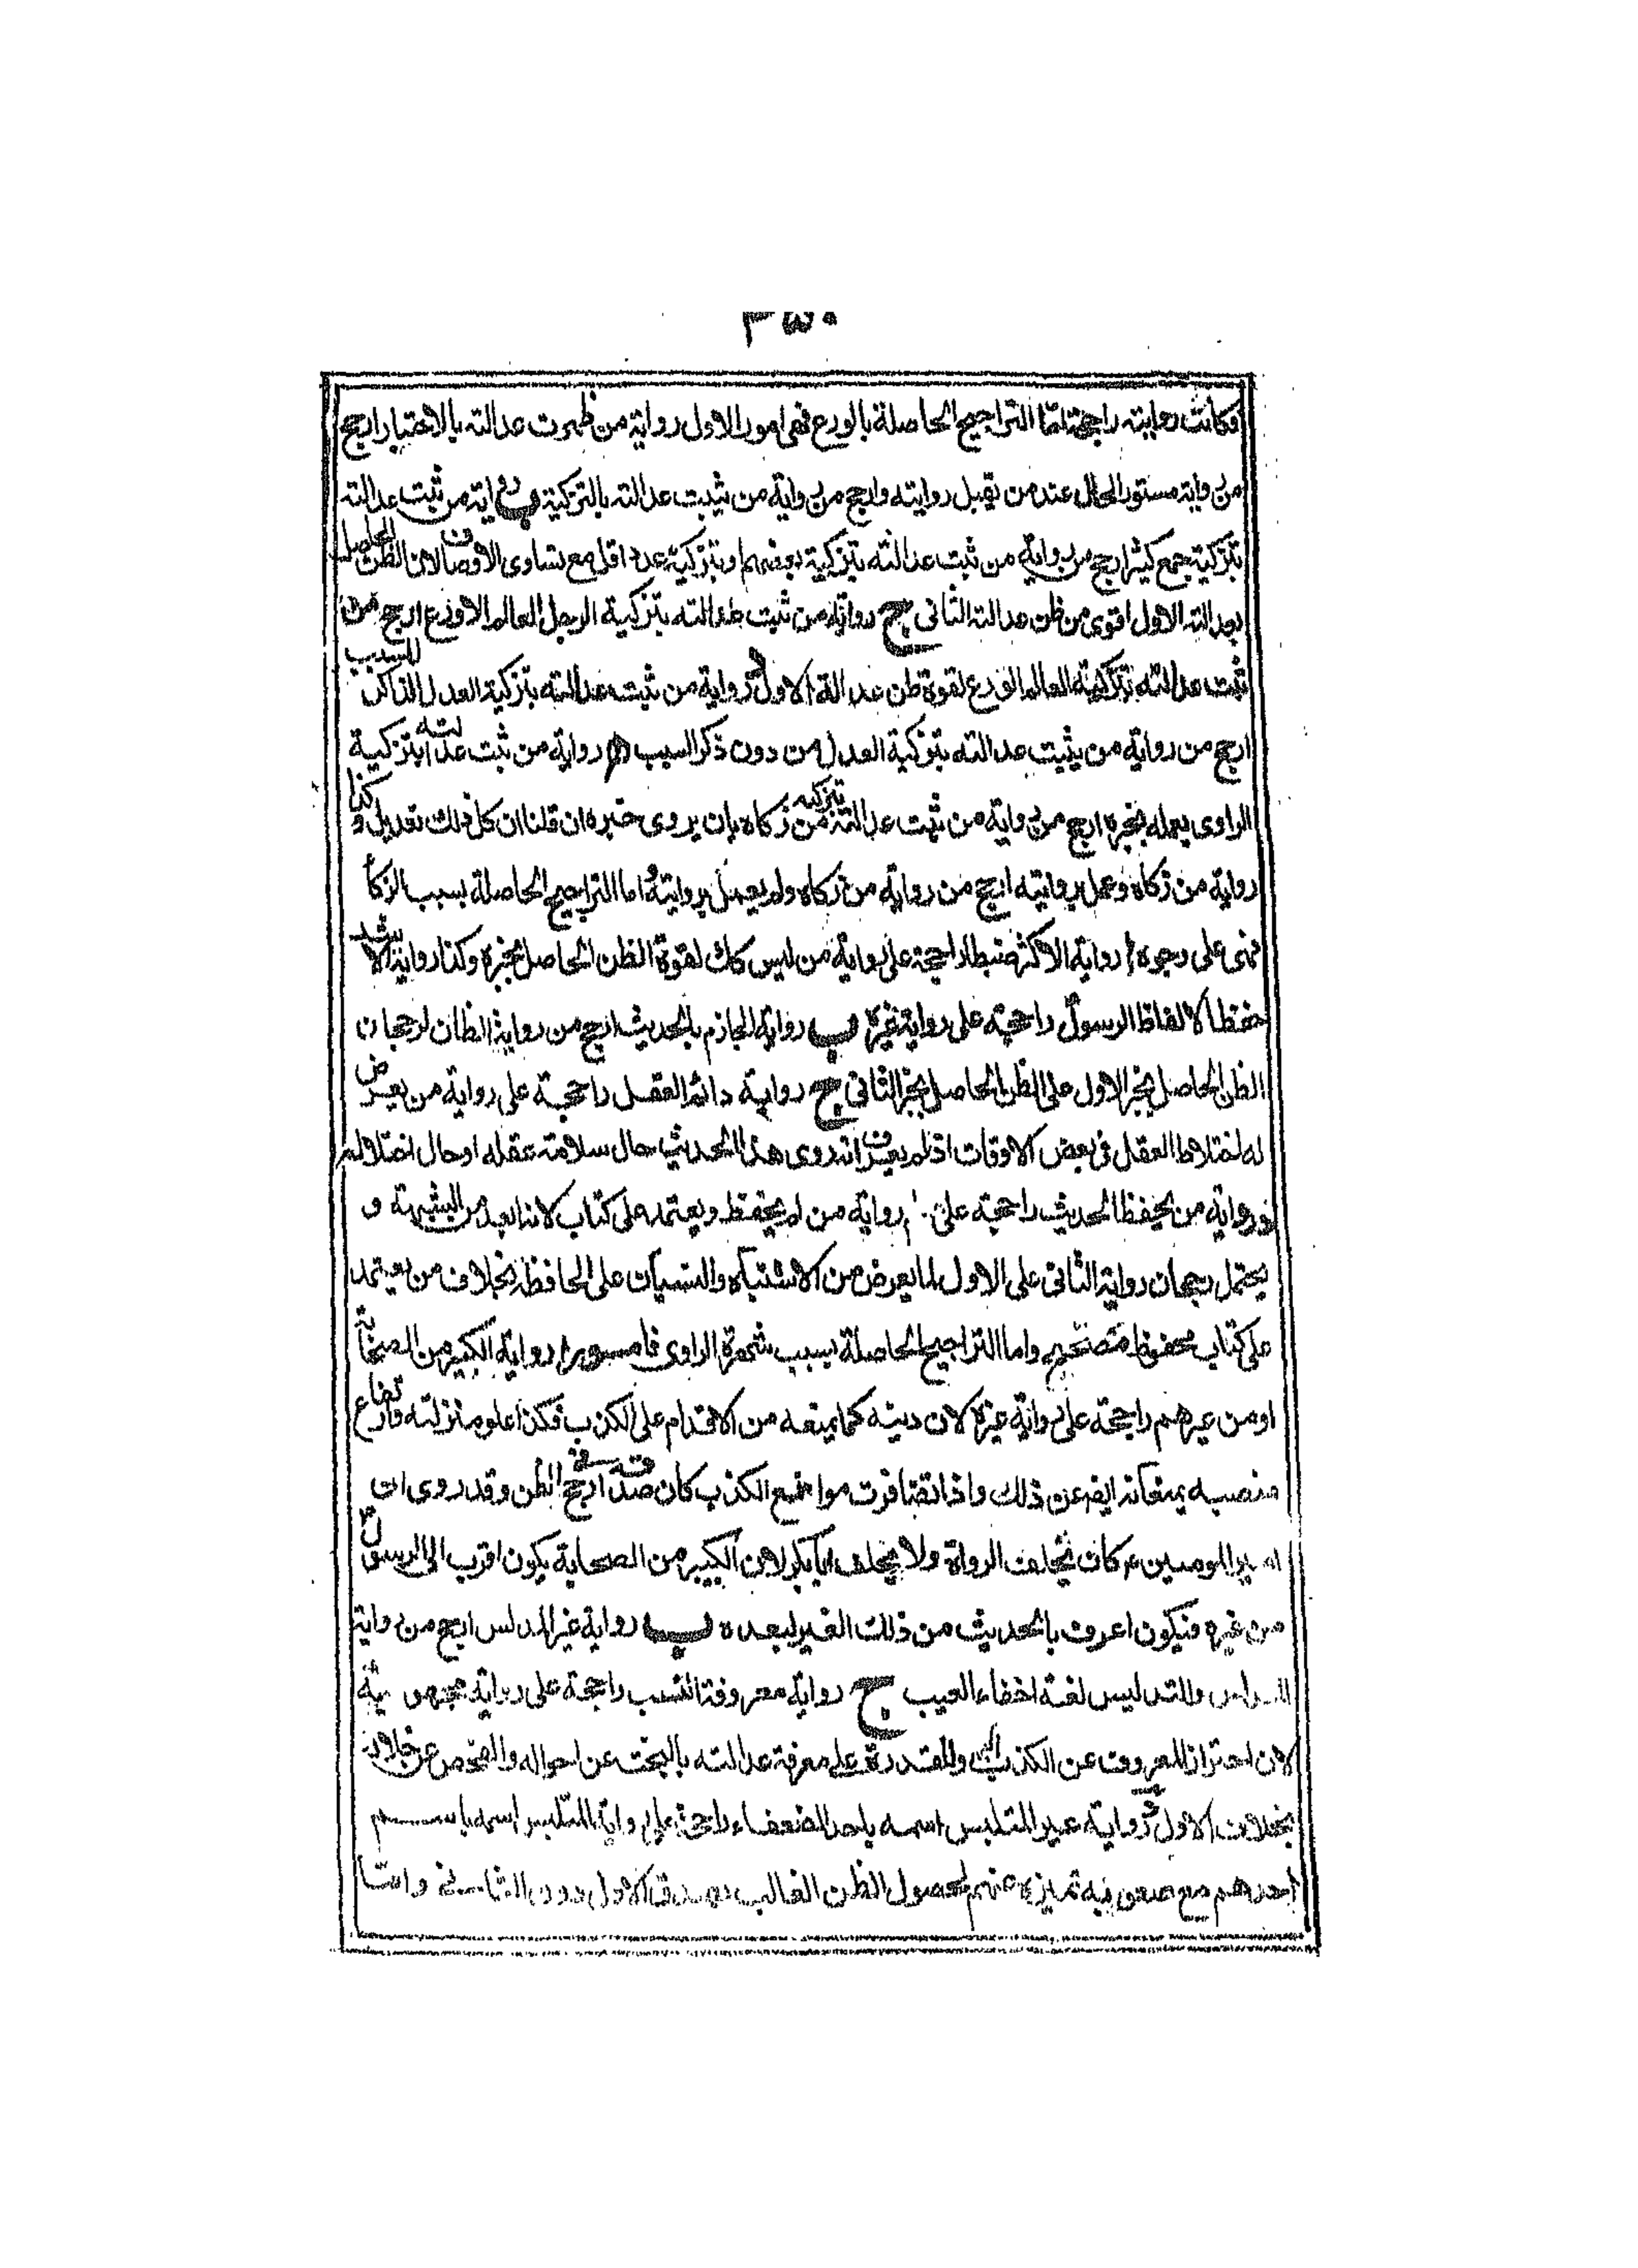 ٣٥٠
فكانت روايته راجحة امّا التراجيح الحاصلة بالورع فهى امور الاول رواية من ظهرت عدالته بالاختبار ارجح
من رواية مستور الحال عند من يقبل روايته وارجح من رواية من ثبتت عدالته بالتزكية ب رواية من ثبت عدالته
بتزكية جمع كثير ارجح من رواية من ثبت عدالته بتزكية بعضهم او بتزكية عدد اقل مع تساوى الاوصاف لان الظن الحاصل
بعدالته الاول اقوى من ظن عدالته الثانى ج رواية من ثبت عدالته بتزكية الرجل العالم الاورع ارجح من
ثبت عدالته بتزكية العالم الورع لقوة ظن عدالة الاول د رواية من ثبت عدالته بتزكية العدل الذاكر للسبب
ارجح من رواية من يثبت عدالته بتزكية العدل من دون ذكر السبب ه رواية من ثبت عدالته بتزكية
الراوى بعمله بخبره ارجح من رواية من ثبت عدالته بتزكيه من زكاه بان يروى خبره ان قلنا ان كل ذلك تعديل وكذا
رواية من زكاه وعمل بروايته ارجح من رواية من زكاه ولم يعمل بروايته واما التراجيح الحاصلة بسبب الزكا
فهى على وجوه ا رواية الاكثر ضبطا راجحة على رواية من ليس كك لقوة الظن الحاصل بخبره وكذا رواية الاشد
حفظا لالفاظ الرسول راجحة على رواية غيره ب رواية الجازم بالحديث ارجح من رواية الظان لرجحان
الظن الحاصل بخبر الاول على الظن الحاصل بخبر الثانى ج رواية دائم العقل راجحة على رواية من يعرض
له اختلاط العقل فى بعض الاوقات اذ لم يعرف انه روى هذا الحديث حال سلامة عقله او حال اختلاله
د رواية من يحفظ الحديث راجحة على رواية من لم يحفظ ويعتمد على كتاب لانه ابعد من الشبهة و
يحتمل رجحان رواية الثانى على الاول لما يعرض من الاشتباه والنسيان على الحافظ بخلاف من يعتمد
على كتاب محفوظ واما التراجيح الحاصلة بسبب شهرة الراوى فامور ا رواية الكبير من الصحابة
او من غيرهم راجحة على رواية غيره لان دينه كما يمنعه من الاقدام على الكذب فكذا علو منزلته وارتفاع
منصبه يمنعانه ايضا عن ذلك واذا تضافرت موانع الكذب كان صدقه ارجح فى الظن وقد روى ان
امير المومنين ع كان يحلف الرواة ولا يحلف ابا بكر لان الكبير من الصحابة يكون اقرب الى الرسول
من غيره فيكون اعرف بالحديث من ذلك الغير لبعده ب رواية غير المدلس ارجح من رواية
المدلس والتدليس لغة اخفاء العيب ج رواية معروفة النسب راجحة على رواية مجهو
لان احتراز المعروف عن الكذب والمقدرة على معرفة عدالته بالبحث عن احواله والفحص عن خلاله
بخلاف الاول د رواية غير الملتبس اسمه باحد الضعفاء راجحة على رواية الملتبس اسمه باسم
احدهم مع صعوبة تميزه عنهم لحصول الظن الغالب بصدق الاول دون الثانى وامّا